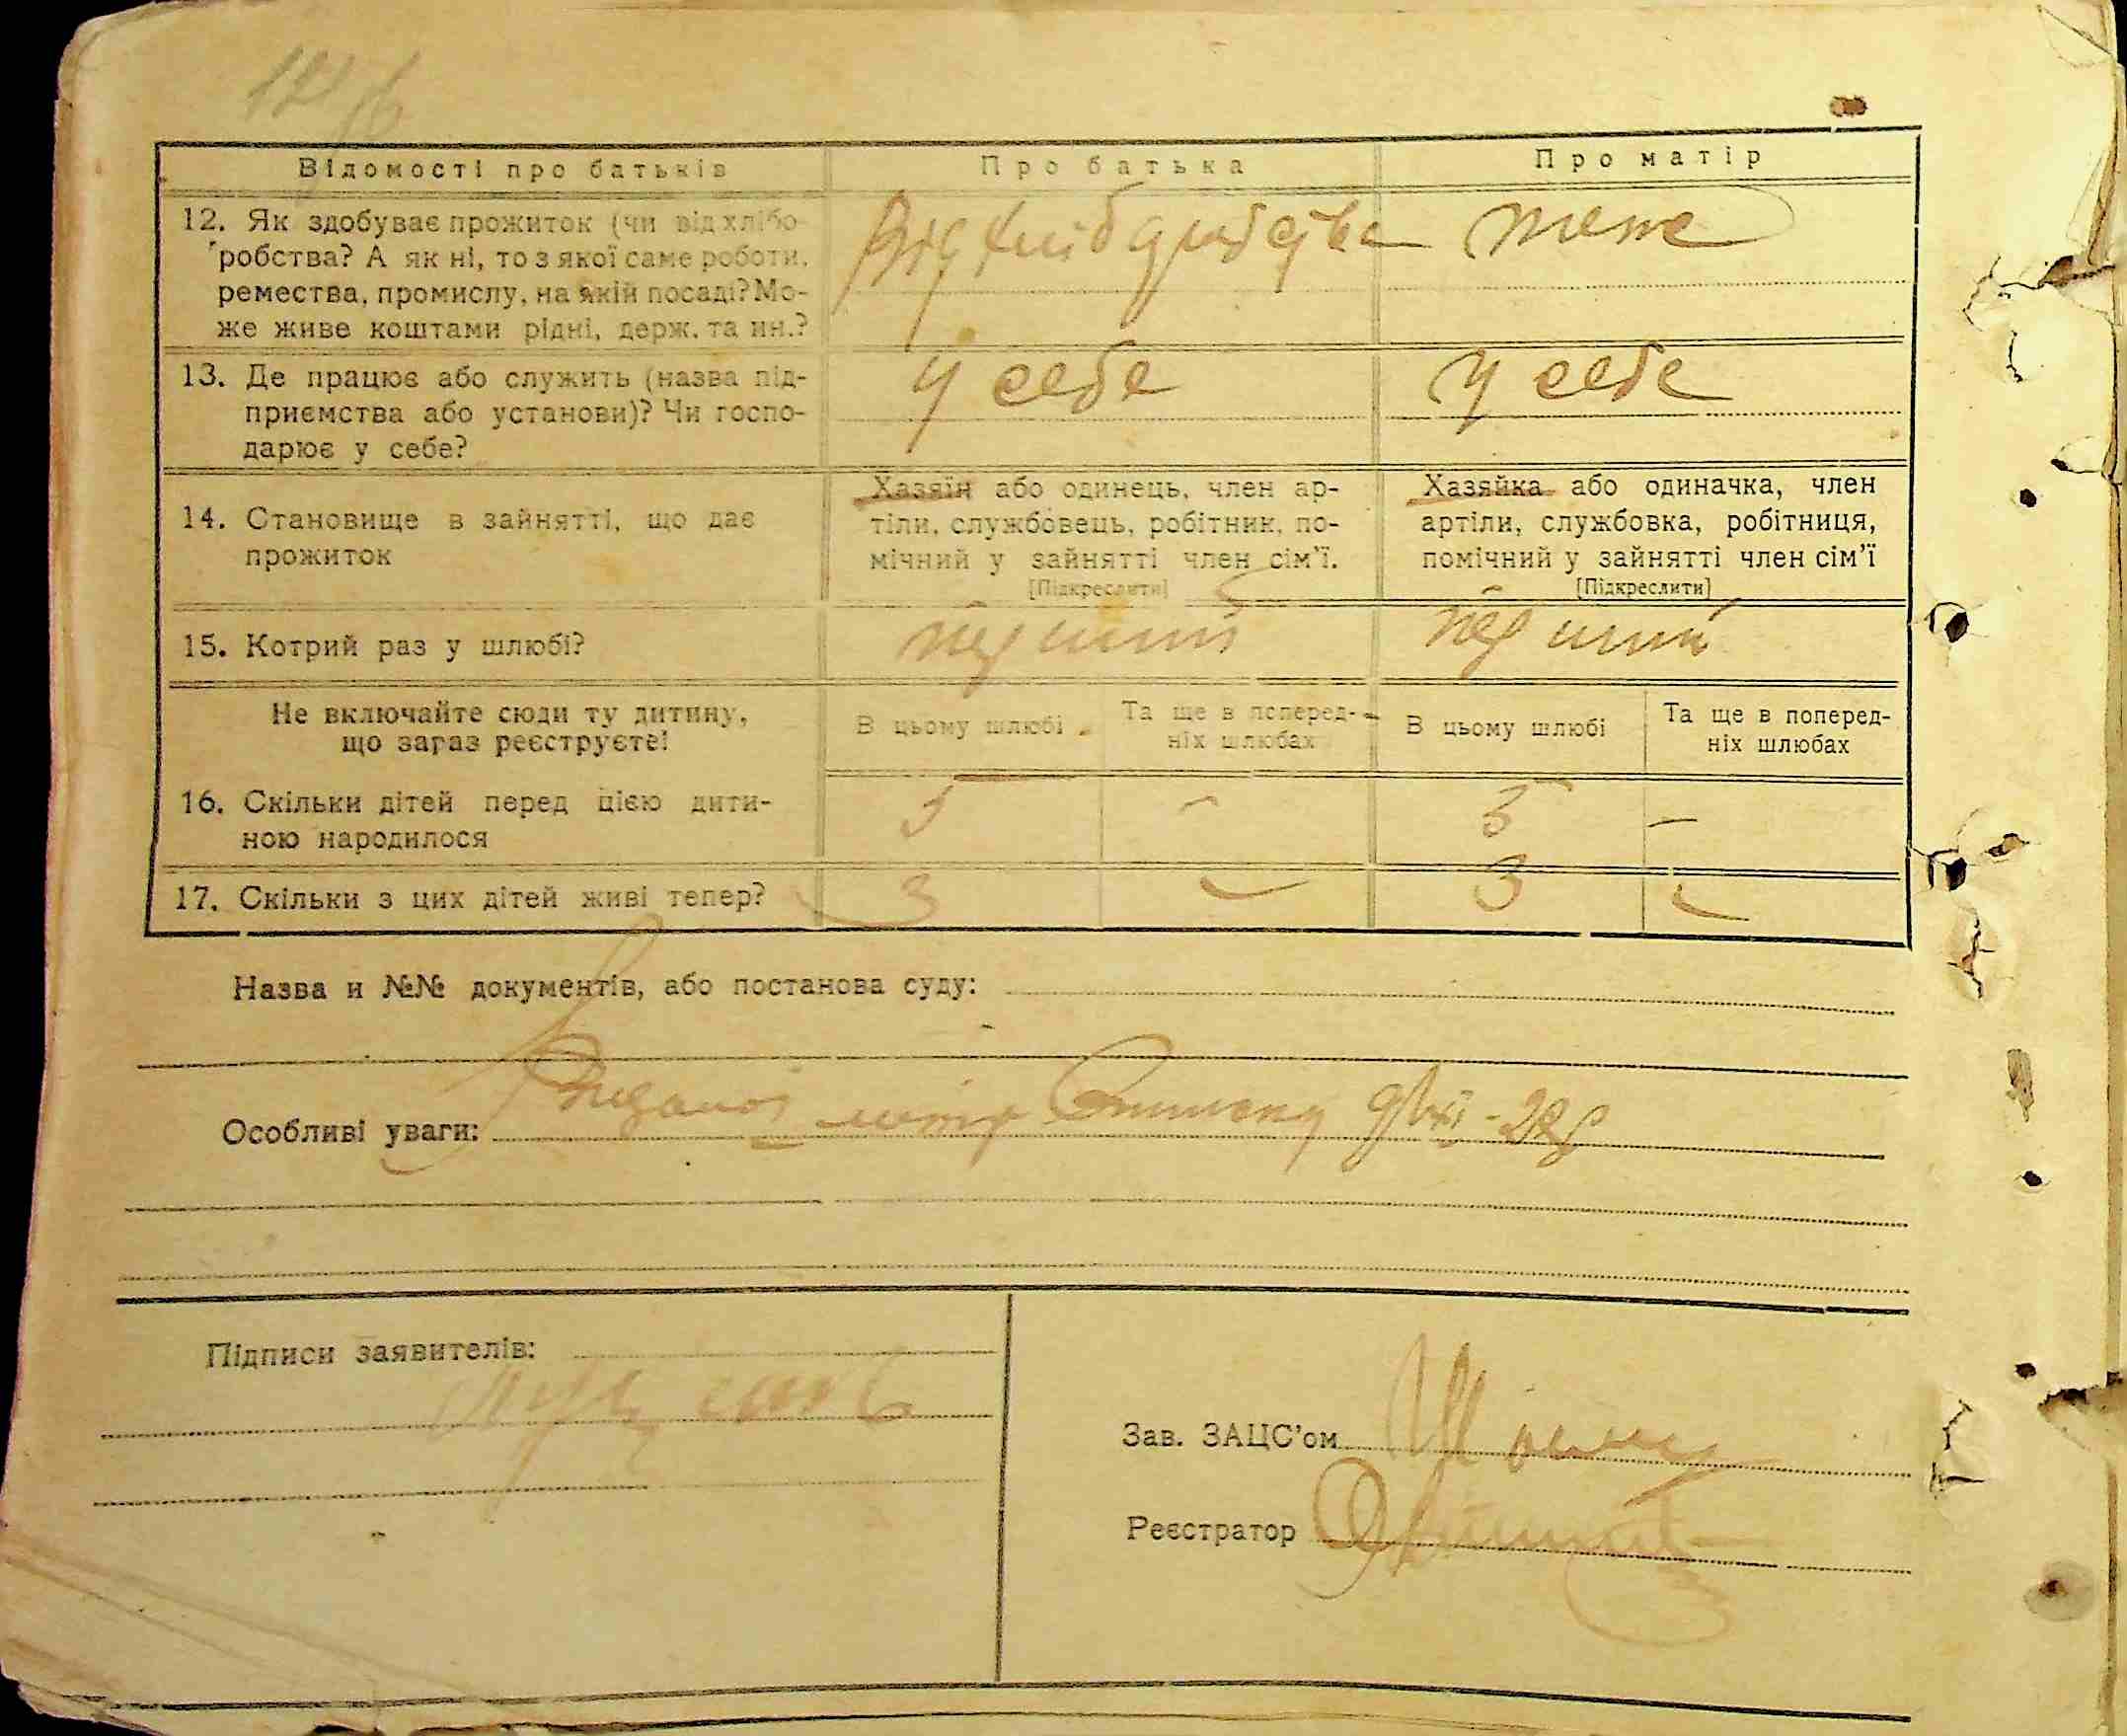 Відомості про батьків Про батька Про матір
12. Як здобуває прожиток (чи від хлібо-
робства? А як ні, то з якої саме роботи,
ремества, промислу, на якій посаді? Мо-
же живе коштами рідні, держ. та ин.?
Від хліборобства теж
13. Де працює або служить (назва під-
приємства або установи)? Чи госпо-
дарює у себе?
у себе у себе
14. Становище в зайнятті, що дає
прожиток
Хазяїн або одинець, член ар-
тіли, службовець, робітник, по-
мічний у зайнятті член сім’ї.
[Підкреслити]
Хазяйка або одиначка, член
артіли, службовка, робітниця,
помічний у зайнятті член сім’ї
[Підкреслити]
15. Котрий раз у шлюбі? перший перший
Не включайте сюди ту дитину,
що зараз реєструєте!
В цьому шлюбі
Та ще в поперед-
ніх шлюбах
В цьому шлюбі
Та ще в поперед-
ніх шлюбах
16. Скільки дітей перед цією дити-
ною народилося
5 - 5 -
17. Скільки з цих дітей живі тепер? 3 - 3 -
Назва и №№ документів, або постанова суду:
Особливі уваги:
Підписи заявителів:
Зав. ЗАЦС’ом
Реєстратор